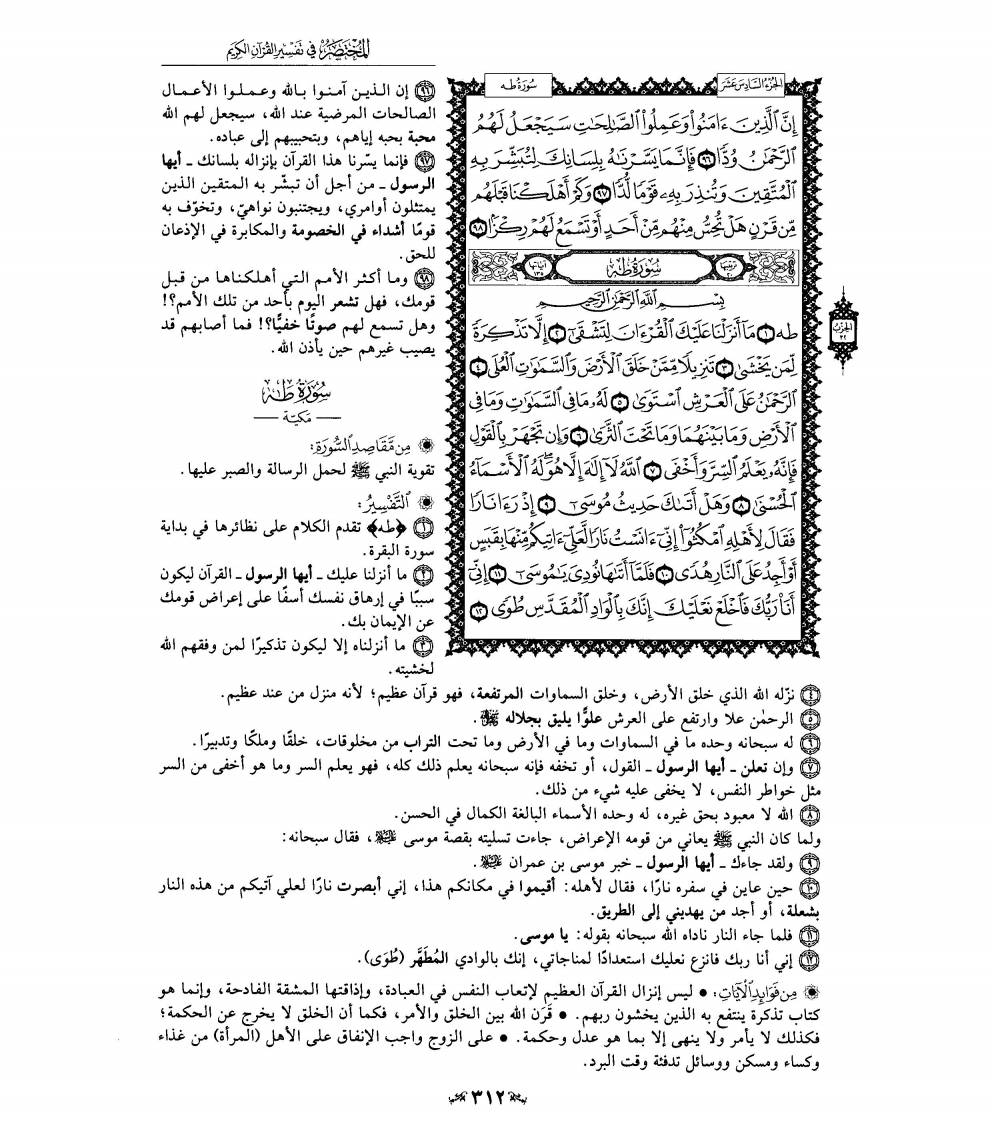 المختصر في تفسير القرآن الكريم
الجزء السادس عشر
سورة طه
إِنَّ ٱلَّذِينَ ءَامَنُوا۟ وَعَمِلُوا۟ ٱلصَّٰلِحَٰتِ سَيَجْعَلُ لَهُمُ
ٱلرَّحْمَٰنُ وُدًّا ٩٦ فَإِنَّمَا يَسَّرْنَٰهُ بِلِسَانِكَ لِتُبَشِّرَ بِهِ
ٱلْمُتَّقِينَ وَتُنذِرَ بِهِۦ قَوْمًا لُّدًّا ٩٧ وَكَمْ أَهْلَكْنَا قَبْلَهُم
مِّن قَرْنٍ هَلْ تُحِسُّ مِنْهُم مِّنْ أَحَدٍ أَوْ تَسْمَعُ لَهُمْ رِكْزًۢا ٩٨
ترتيبها ٢٠
سورة طه
آياتها ١٣٥
بِسْمِ ٱللَّهِ ٱلرَّحْمَٰنِ ٱلرَّحِيمِ
طه ١ مَآ أَنزَلْنَا عَلَيْكَ ٱلْقُرْءَانَ لِتَشْقَىٰٓ ٢ إِلَّا تَذْكِرَةً
لِّمَن يَخْشَىٰ ٣ تَنزِيلًا مِّمَّنْ خَلَقَ ٱلْأَرْضَ وَٱلسَّمَٰوَٰتِ ٱلْعُلَى ٤
ٱلرَّحْمَٰنُ عَلَى ٱلْعَرْشِ ٱسْتَوَىٰ ٥ لَهُۥ مَا فِى ٱلسَّمَٰوَٰتِ وَمَا فِى
ٱلْأَرْضِ وَمَا بَيْنَهُمَا وَمَا تَحْتَ ٱلثَّرَىٰ ٦ وَإِن تَجْهَرْ بِٱلْقَوْلِ
فَإِنَّهُۥ يَعْلَمُ ٱلسِّرَّ وَأَخْفَى ٧ ٱللَّهُ لَآ إِلَٰهَ إِلَّا هُوَ ۖ لَهُ ٱلْأَسْمَآءُ
ٱلْحُسْنَىٰ ٨ وَهَلْ أَتَىٰكَ حَدِيثُ مُوسَىٰٓ ٩ إِذْ رَءَا نَارًا
فَقَالَ لِأَهْلِهِ ٱمْكُثُوٓا۟ إِنِّىٓ ءَانَسْتُ نَارًا لَّعَلِّىٓ ءَاتِيكُم مِّنْهَا بِقَبَسٍ
أَوْ أَجِدُ عَلَى ٱلنَّارِ هُدًى ١٠ فَلَمَّآ أَتَىٰهَا نُودِىَ يَٰمُوسَىٰٓ ١١ إِنِّىٓ
أَنَا۠ رَبُّكَ فَٱخْلَعْ نَعْلَيْكَ ۖ إِنَّكَ بِٱلْوَادِ ٱلْمُقَدَّسِ طُوًى ١٢
الحزب ٣٢
٩٦ إن الذين آمنوا بالله وعملوا الأعمال
الصالحات المرضية عند الله، سيجعل لهم الله
محبة بحبه إياهم، وبتحبيبهم إلى عباده.
٩٧ فإنما يسّرنا هذا القرآن بإنزاله بلسانك ـ أيها
الرسول ـ من أجل أن تبشّر به المتقين الذين
يمتثلون أوامري، ويجتنبون نواهيّ، وتخوّف به
قومًا أشداء في الخصومة والمكابرة في الإذعان
للحق.
٩٨ وما أكثر الأمم التي أهلكناها من قبل
قومك، فهل تشعر اليوم بأحد من تلك الأمم؟!
وهل تسمع لهم صوتًا خفيًّا؟! فما أصابهم قد
يصيب غيرهم حين يأذن الله.
سورة طه
ـ مكية ـ
من مقاصد السورة:
تقوية النبي ﷺ لحمل الرسالة والصبر عليها.
التفسير:
١ ﴿طه﴾ تقدم الكلام على نظائرها في بداية
سورة البقرة.
٢ ما أنزلنا عليك ـ أيها الرسول ـ القرآن ليكون
سببًا في إرهاق نفسك أسفًا على إعراض قومك
عن الإيمان بك.
٣ ما أنزلناه إلا ليكون تذكيرًا لمن وفقهم الله
لخشيته.
٤ نزّله الله الذي خلق الأرض، وخلق السماوات المرتفعة، فهو قرآن عظيم؛ لأنه منزل من عند عظيم.
٥ الرحمٰن علا وارتفع على العرش علوًّا يليق بجلاله ﷻ.
٦ له سبحانه وحده ما في السماوات وما في الأرض وما تحت التراب من مخلوقات، خلقًا وملكًا وتدبيرًا.
٧ وإن تعلن ـ أيها الرسول ـ القول، أو تخفه فإنه سبحانه يعلم ذلك كله، فهو يعلم السر وما هو أخفى من السر
مثل خواطر النفس، لا يخفى عليه شيء من ذلك.
٨ الله لا معبود بحق غيره، له وحده الأسماء البالغة الكمال في الحسن.
ولما كان النبي ﷺ يعاني من قومه الإعراض، جاءت تسليته بقصة موسى عليه السلام، فقال سبحانه:
٩ ولقد جاءك ـ أيها الرسول ـ خبر موسى بن عمران عليه السلام.
١٠ حين عاين في سفره نارًا، فقال لأهله: أقيموا في مكانكم هذا، إني أبصرت نارًا لعلي آتيكم من هذه النار
بشعلة، أو أجد من يهديني إلى الطريق.
١١ فلما جاء النار ناداه الله سبحانه بقوله: يا موسى.
١٢ إني أنا ربك فانزع نعليك استعدادًا لمناجاتي، إنك بالوادي المُطَهَّر (طُوَى).
من فوائد الآيات: • ليس إنزال القرآن العظيم لإتعاب النفس في العبادة، وإذاقتها المشقة الفادحة، وإنما هو
كتاب تذكرة ينتفع به الذين يخشون ربهم. • قَرَن الله بين الخلق والأمر، فكما أن الخلق لا يخرج عن الحكمة؛
فكذلك لا يأمر ولا ينهى إلا بما هو عدل وحكمة. • على الزوج واجب الإنفاق على الأهل (المرأة) من غذاء
وكساء ومسكن ووسائل تدفئة وقت البرد.
٣١٢